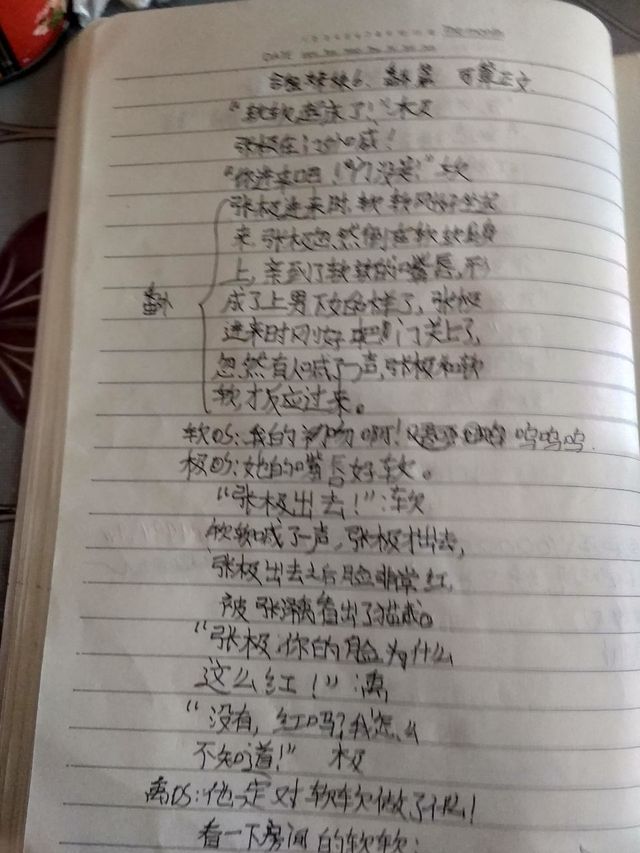 The month
DATE
妹妹6、番外篇 可算正文
“软软,起床了!”极
张极在门外喊!
“你进来吧!门没关!”软
张极进来时,软软刚好坐起
来,张极忽然倒在软软身
上,亲到了软软的嘴唇,形
成了上男下女的样了,张极
番外
进来时刚好把门关上了,
忽然有人喊了一声,张极和软
软才反应过来。
软OS:我的初吻啊! 呜呜呜.
极OS:她的嘴唇好软。
“张极出去!”:软
软软喊了一声,张极才出去,
张极出去之后脸非常红,
被张泽禹看出了猫腻。
“张极,你的脸为什么
这么红!”:禹
“没有,红吗?我怎么
不知道!” 极
禹OS:他一定对软软做了什么!
看一下房间的软软: